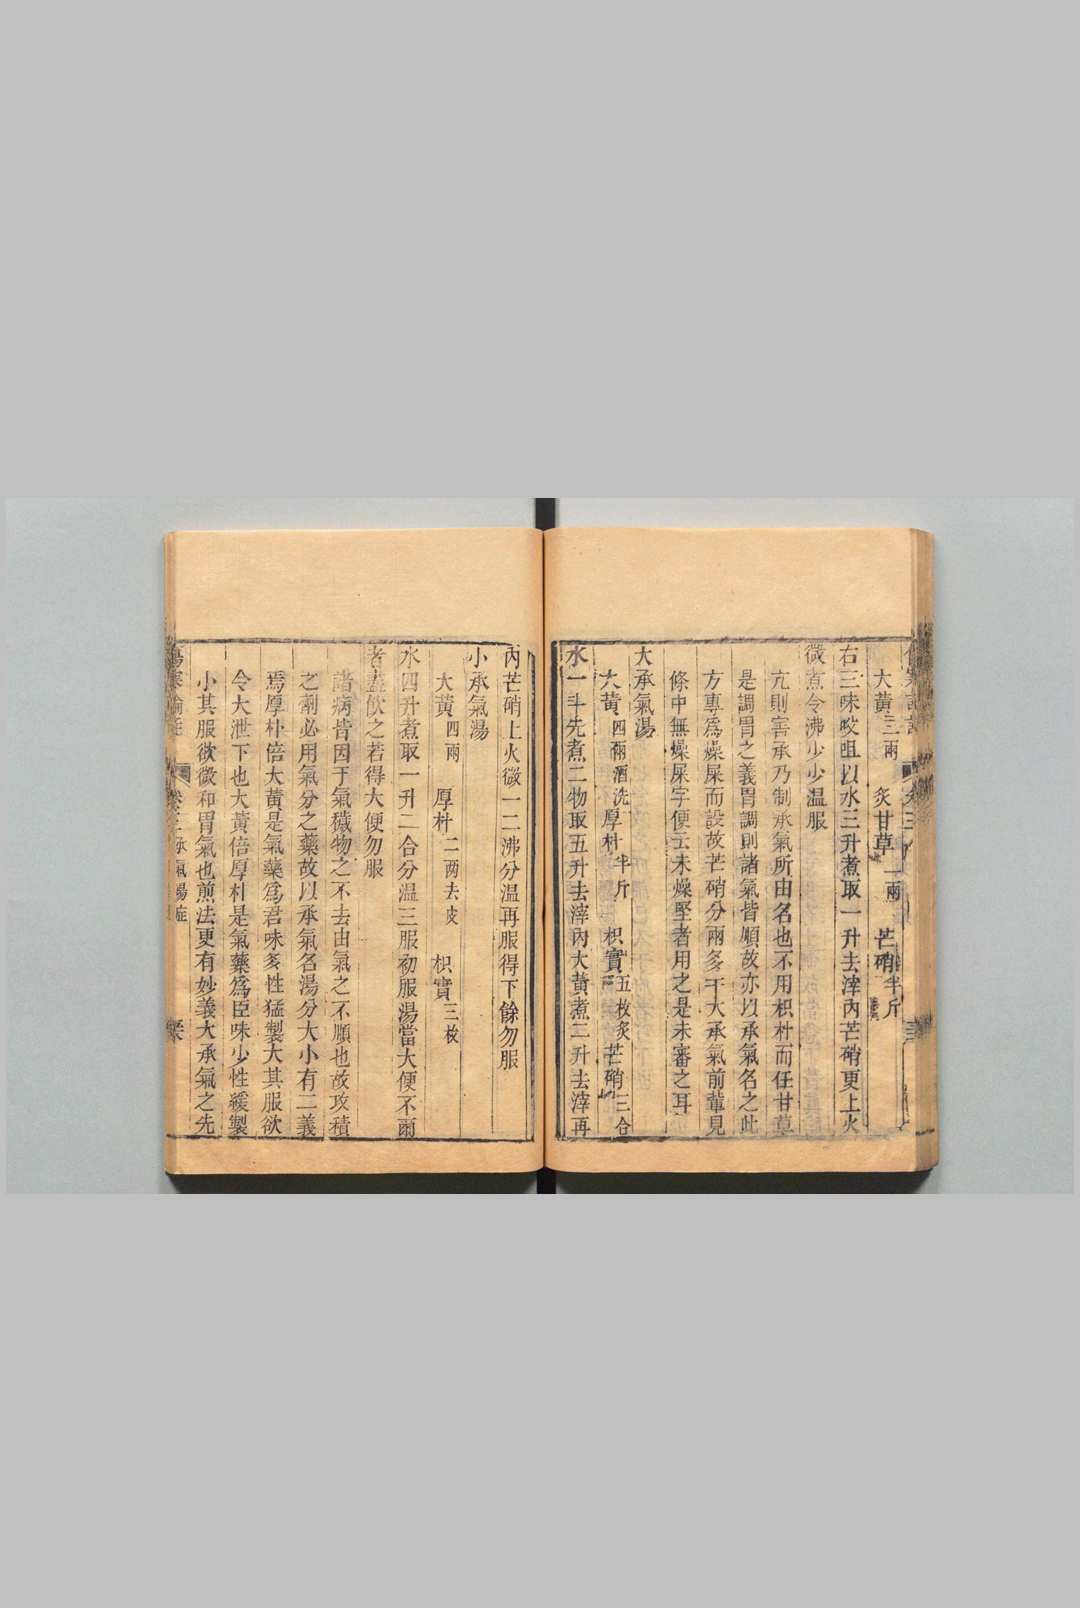 大黃三兩 炙甘草一兩 芒硝半斤
右三味㕮咀以水三升煮取一升去滓內芒硝更上火
微煮令沸少少温服
亢則害承乃制承氣所由名也不用枳朴而任甘草
是調胃之義胃調則諸氣皆順故亦以承氣名之此
方專爲燥屎而設故芒硝分兩多于大承氣前輩見
條中無燥屎字便云未燥堅者用之是未審之耳
大承氣湯
大黃四兩酒洗 厚朴半斤 枳實五枚炙 芒硝三合
水一斗先煮二物取五升去滓內大黃煮二升去滓再
內芒硝上火微一二沸分温再服得下餘勿服
小承氣湯
大黃四兩 厚朴二两去皮 枳實三枚
水四升煮取一升二合分温三服初服湯當大便不爾
者盡飲之若得大便勿服
諸病皆因于氣穢物之不去由氣之不順也故攻積
之劑必用氣分之藥故以承氣名湯分大小有二義
焉厚朴倍大黃是氣藥爲君味多性猛製大其服欲
令大泄下也大黃倍厚朴是氣藥爲臣味少性緩製
小其服欲微和胃氣也煎法更有妙義大承氣之先